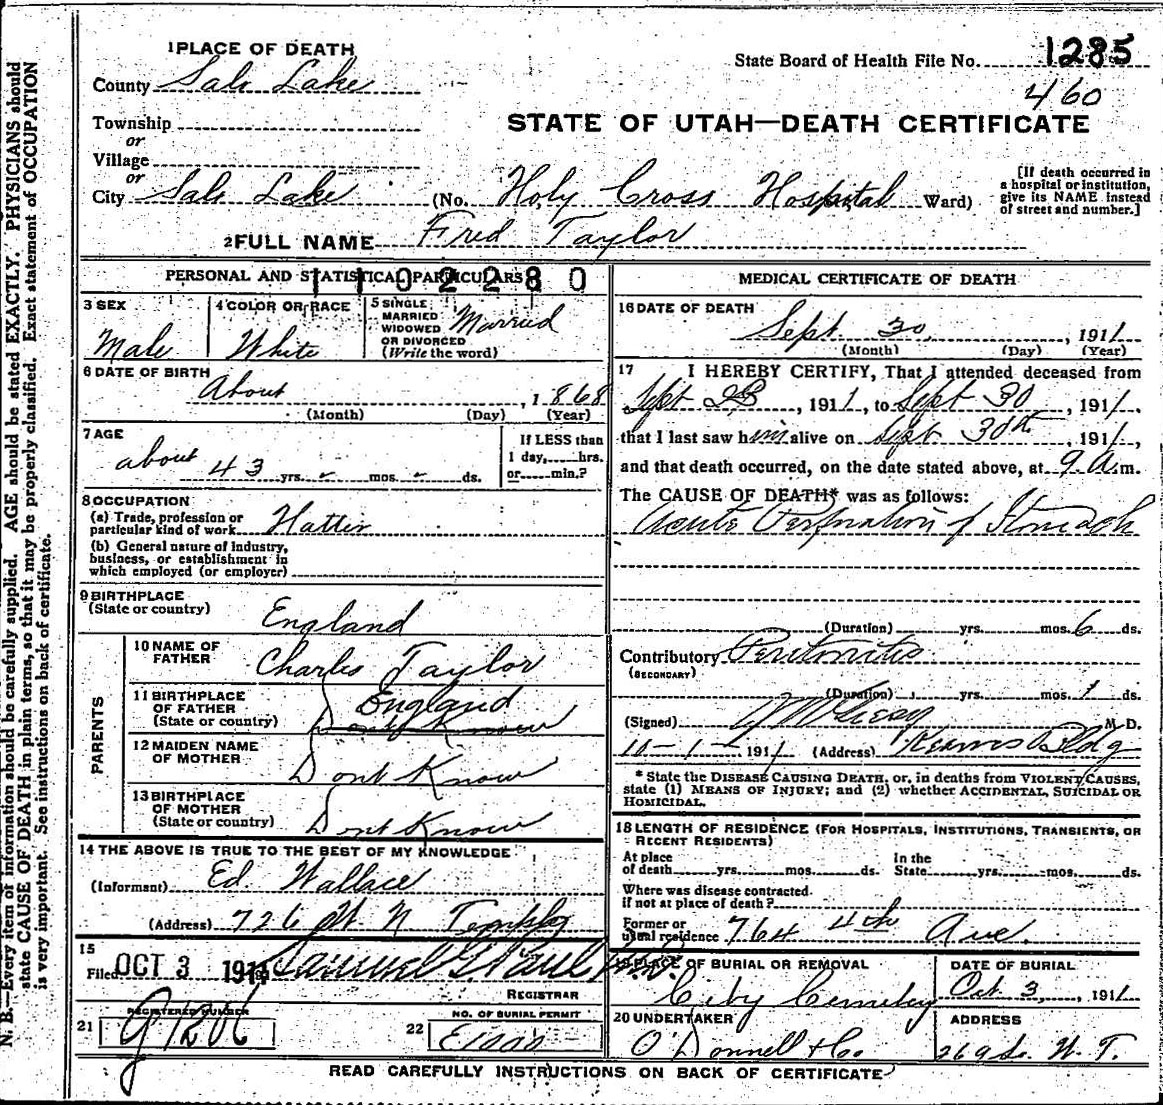 1 PLACE OF DEATH
State Board of Health File No. 1285
460
County Salt Lake
STATE OF UTAH—DEATH CERTIFICATE
Township
or
Village
or
City Salt Lake (No. Holy Cross Hospital Ward)
[If death occurred in
a hospital or institution,
give its NAME instead
of street and number.]
2 FULL NAME Fred Taylor
PERSONAL AND STATISTICAL PARTICULARS
1102280
3 SEX
Male
4 COLOR OR RACE
White
5 SINGLE
MARRIED
WIDOWED
OR DIVORCED
(Write the word)
Married
6 DATE OF BIRTH
About , 1868
(Month) (Day) (Year)
7 AGE
about 43 yrs. - mos. - ds.
If LESS than
1 day, hrs.
or min.?
8 OCCUPATION
(a) Trade, profession or
particular kind of work Hatter
(b) General nature of industry,
business, or establishment in
which employed (or employer)
9 BIRTHPLACE
(State or country)
England
PARENTS
10 NAME OF
FATHER
Charles Taylor
11 BIRTHPLACE
OF FATHER
(State or country)
England
Dont Know
12 MAIDEN NAME
OF MOTHER
Dont Know
13 BIRTHPLACE
OF MOTHER
(State or country)
Dont Know
14 THE ABOVE IS TRUE TO THE BEST OF MY KNOWLEDGE
(Informant) Ed. Wallace
(Address) 726 W. N Temple
15
Filed OCT 3 1911 Samuel G. Paul
REGISTRAR
REGISTERED NUMBER
21 91206
NO. OF BURIAL PERMIT
22
MEDICAL CERTIFICATE OF DEATH
16 DATE OF DEATH
Sept. 30, , 1911
(Month) (Day) (Year)
17 I HEREBY CERTIFY, That I attended deceased from
Sept 28 , 1911, to Sept 30 , 1911,
that I last saw him alive on Sept 30th , 1911,
and that death occurred, on the date stated above, at 9 a.m.
The CAUSE OF DEATH* was as follows:
Acute Perforation of Stomach
(Duration) yrs. mos. 6 ds.
Contributory Peritonitis
(SECONDARY)
(Duration) yrs. mos. 1 ds.
(Signed) M. D.
10-1- 1911 (Address) Kearns Bldg
* State the DISEASE CAUSING DEATH, or, in deaths from VIOLENT CAUSES,
state (1) MEANS OF INJURY; and (2) whether ACCIDENTAL, SUICIDAL OR
HOMICIDAL.
18 LENGTH OF RESIDENCE (FOR HOSPITALS, INSTITUTIONS, TRANSIENTS, OR
RECENT RESIDENTS)
At place
of death yrs. mos. ds.
In the
State yrs. mos. ds.
Where was disease contracted
if not at place of death?
Former or
usual residence 764 4th Ave.
19 PLACE OF BURIAL OR REMOVAL
City Cemetery
DATE OF BURIAL
Oct. 3, , 1911
20 UNDERTAKER
O'Donnell & Co.
ADDRESS
269 So. W. T.
READ CAREFULLY INSTRUCTIONS ON BACK OF CERTIFICATE
N. B.—Every item of information should be carefully supplied. AGE should be stated EXACTLY. PHYSICIANS should
state CAUSE OF DEATH in plain terms, so that it may be properly classified. Exact statement of OCCUPATION
is very important. See instructions on back of certificate.